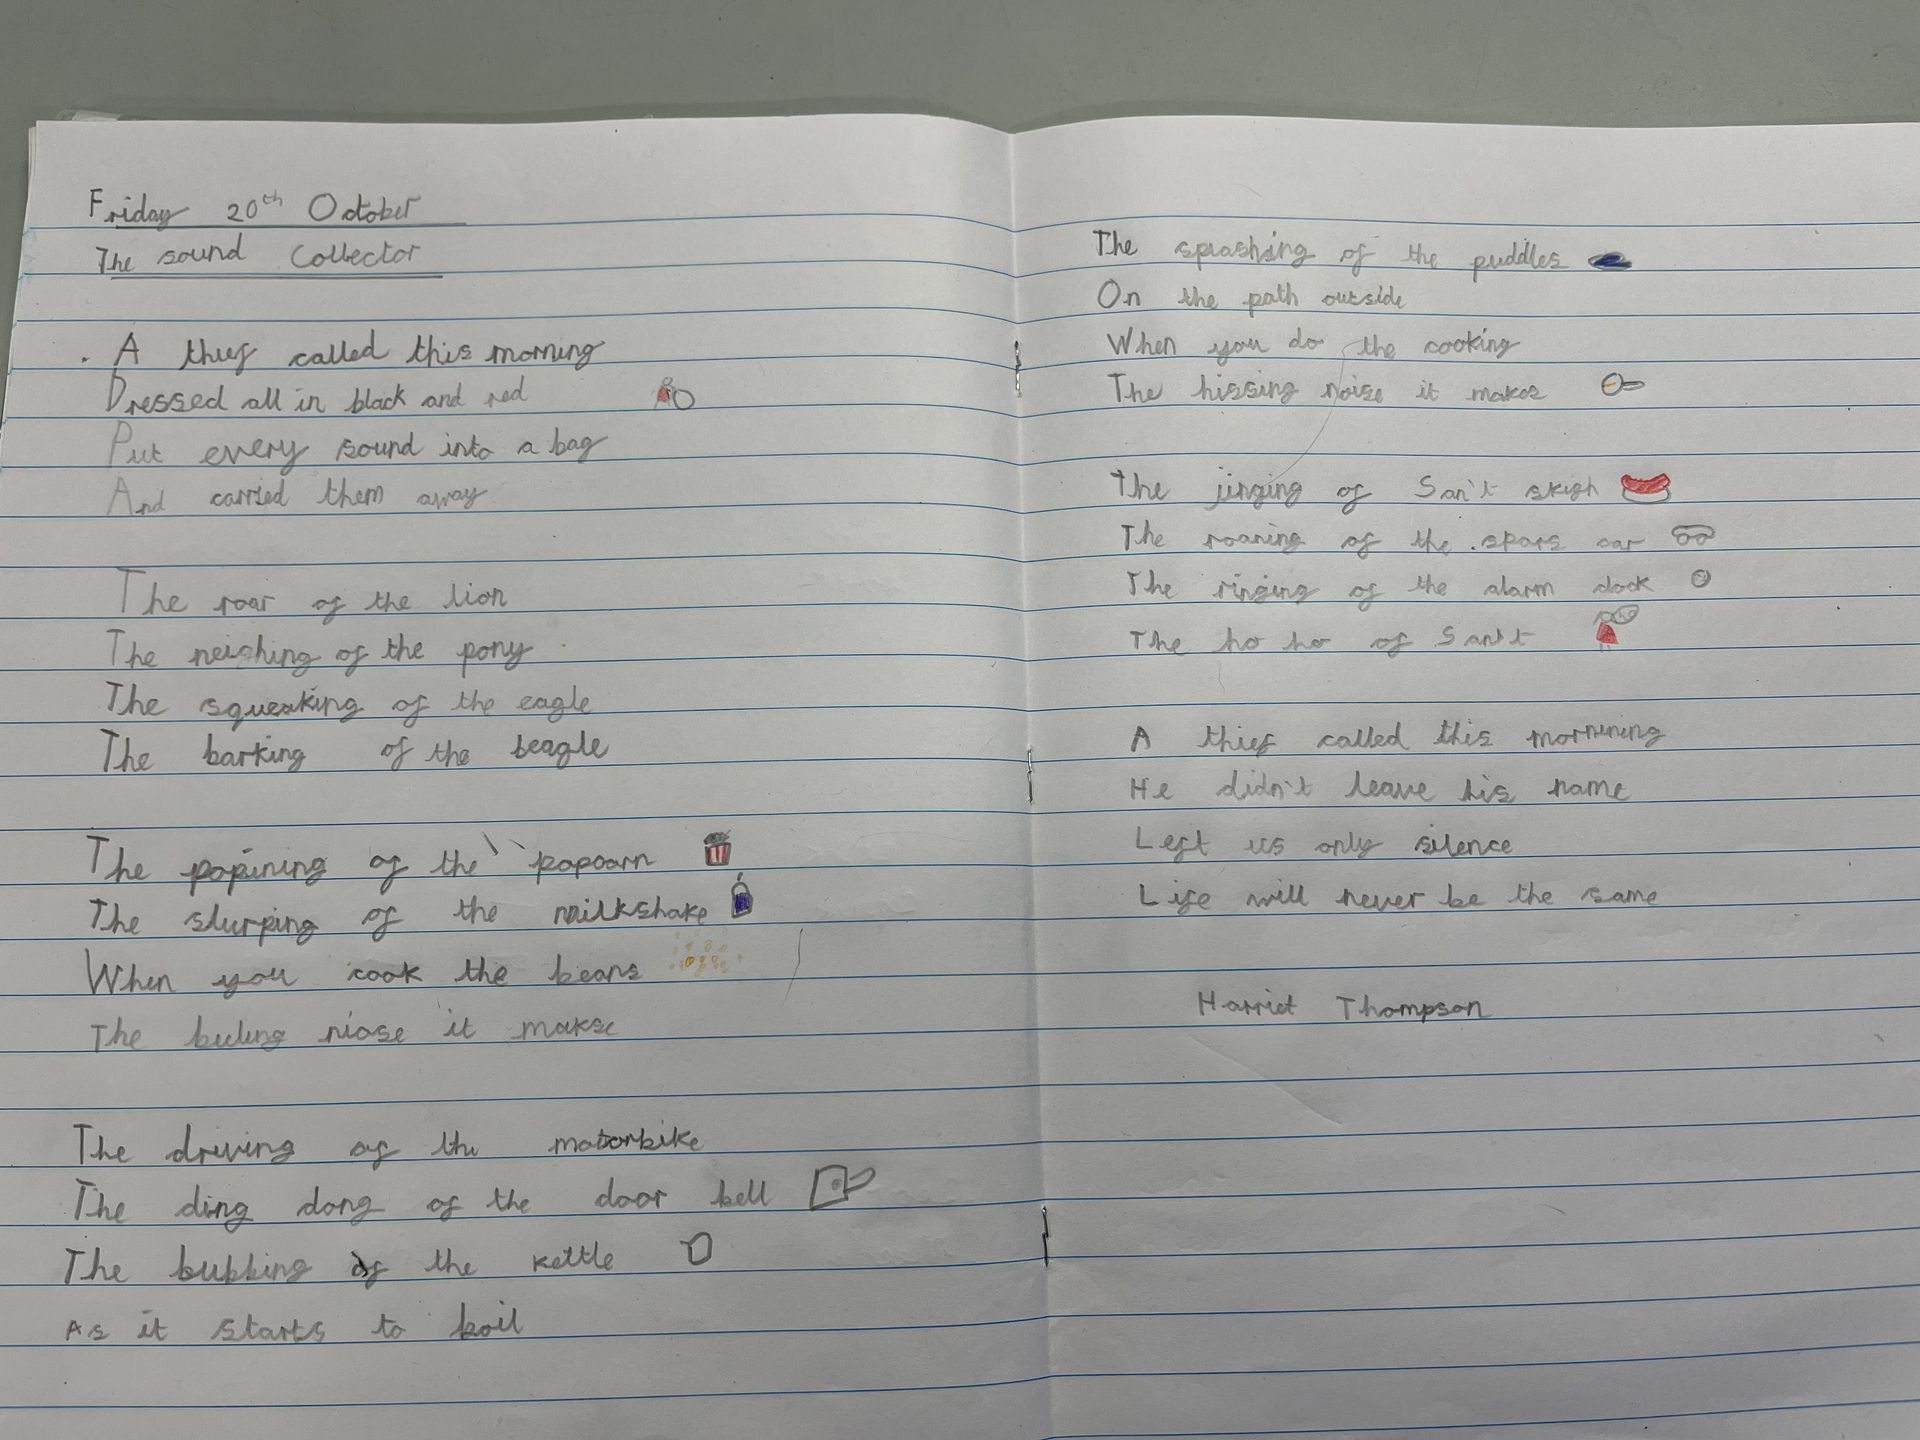 Friday 20th October
The sound Collector
A thief called this morning
Dressed all in black and red
Put every sound into a bag
And carried them away
The roar of the lion
The neighing of the pony
The squeaking of the eagle
The barking of the beagle
The popining of the popcorn
The slurping of the milkshake
When you cook the beans
The niose it makse
The driving of the motorbike
The ding dong of the door bell
The bubbing of the kettle
As it starts to boil
The splashing of the puddles
On the path outside
When you do the cooking
The hissing noise it makes
The jinging of San't sleigh
The roaring of the spors car
The ringing of the alarm clock
The ho ho of San't
A thief called this mornining
He didn't leave his name
Left us only silence
Life will never be the same
Harriet Thompson